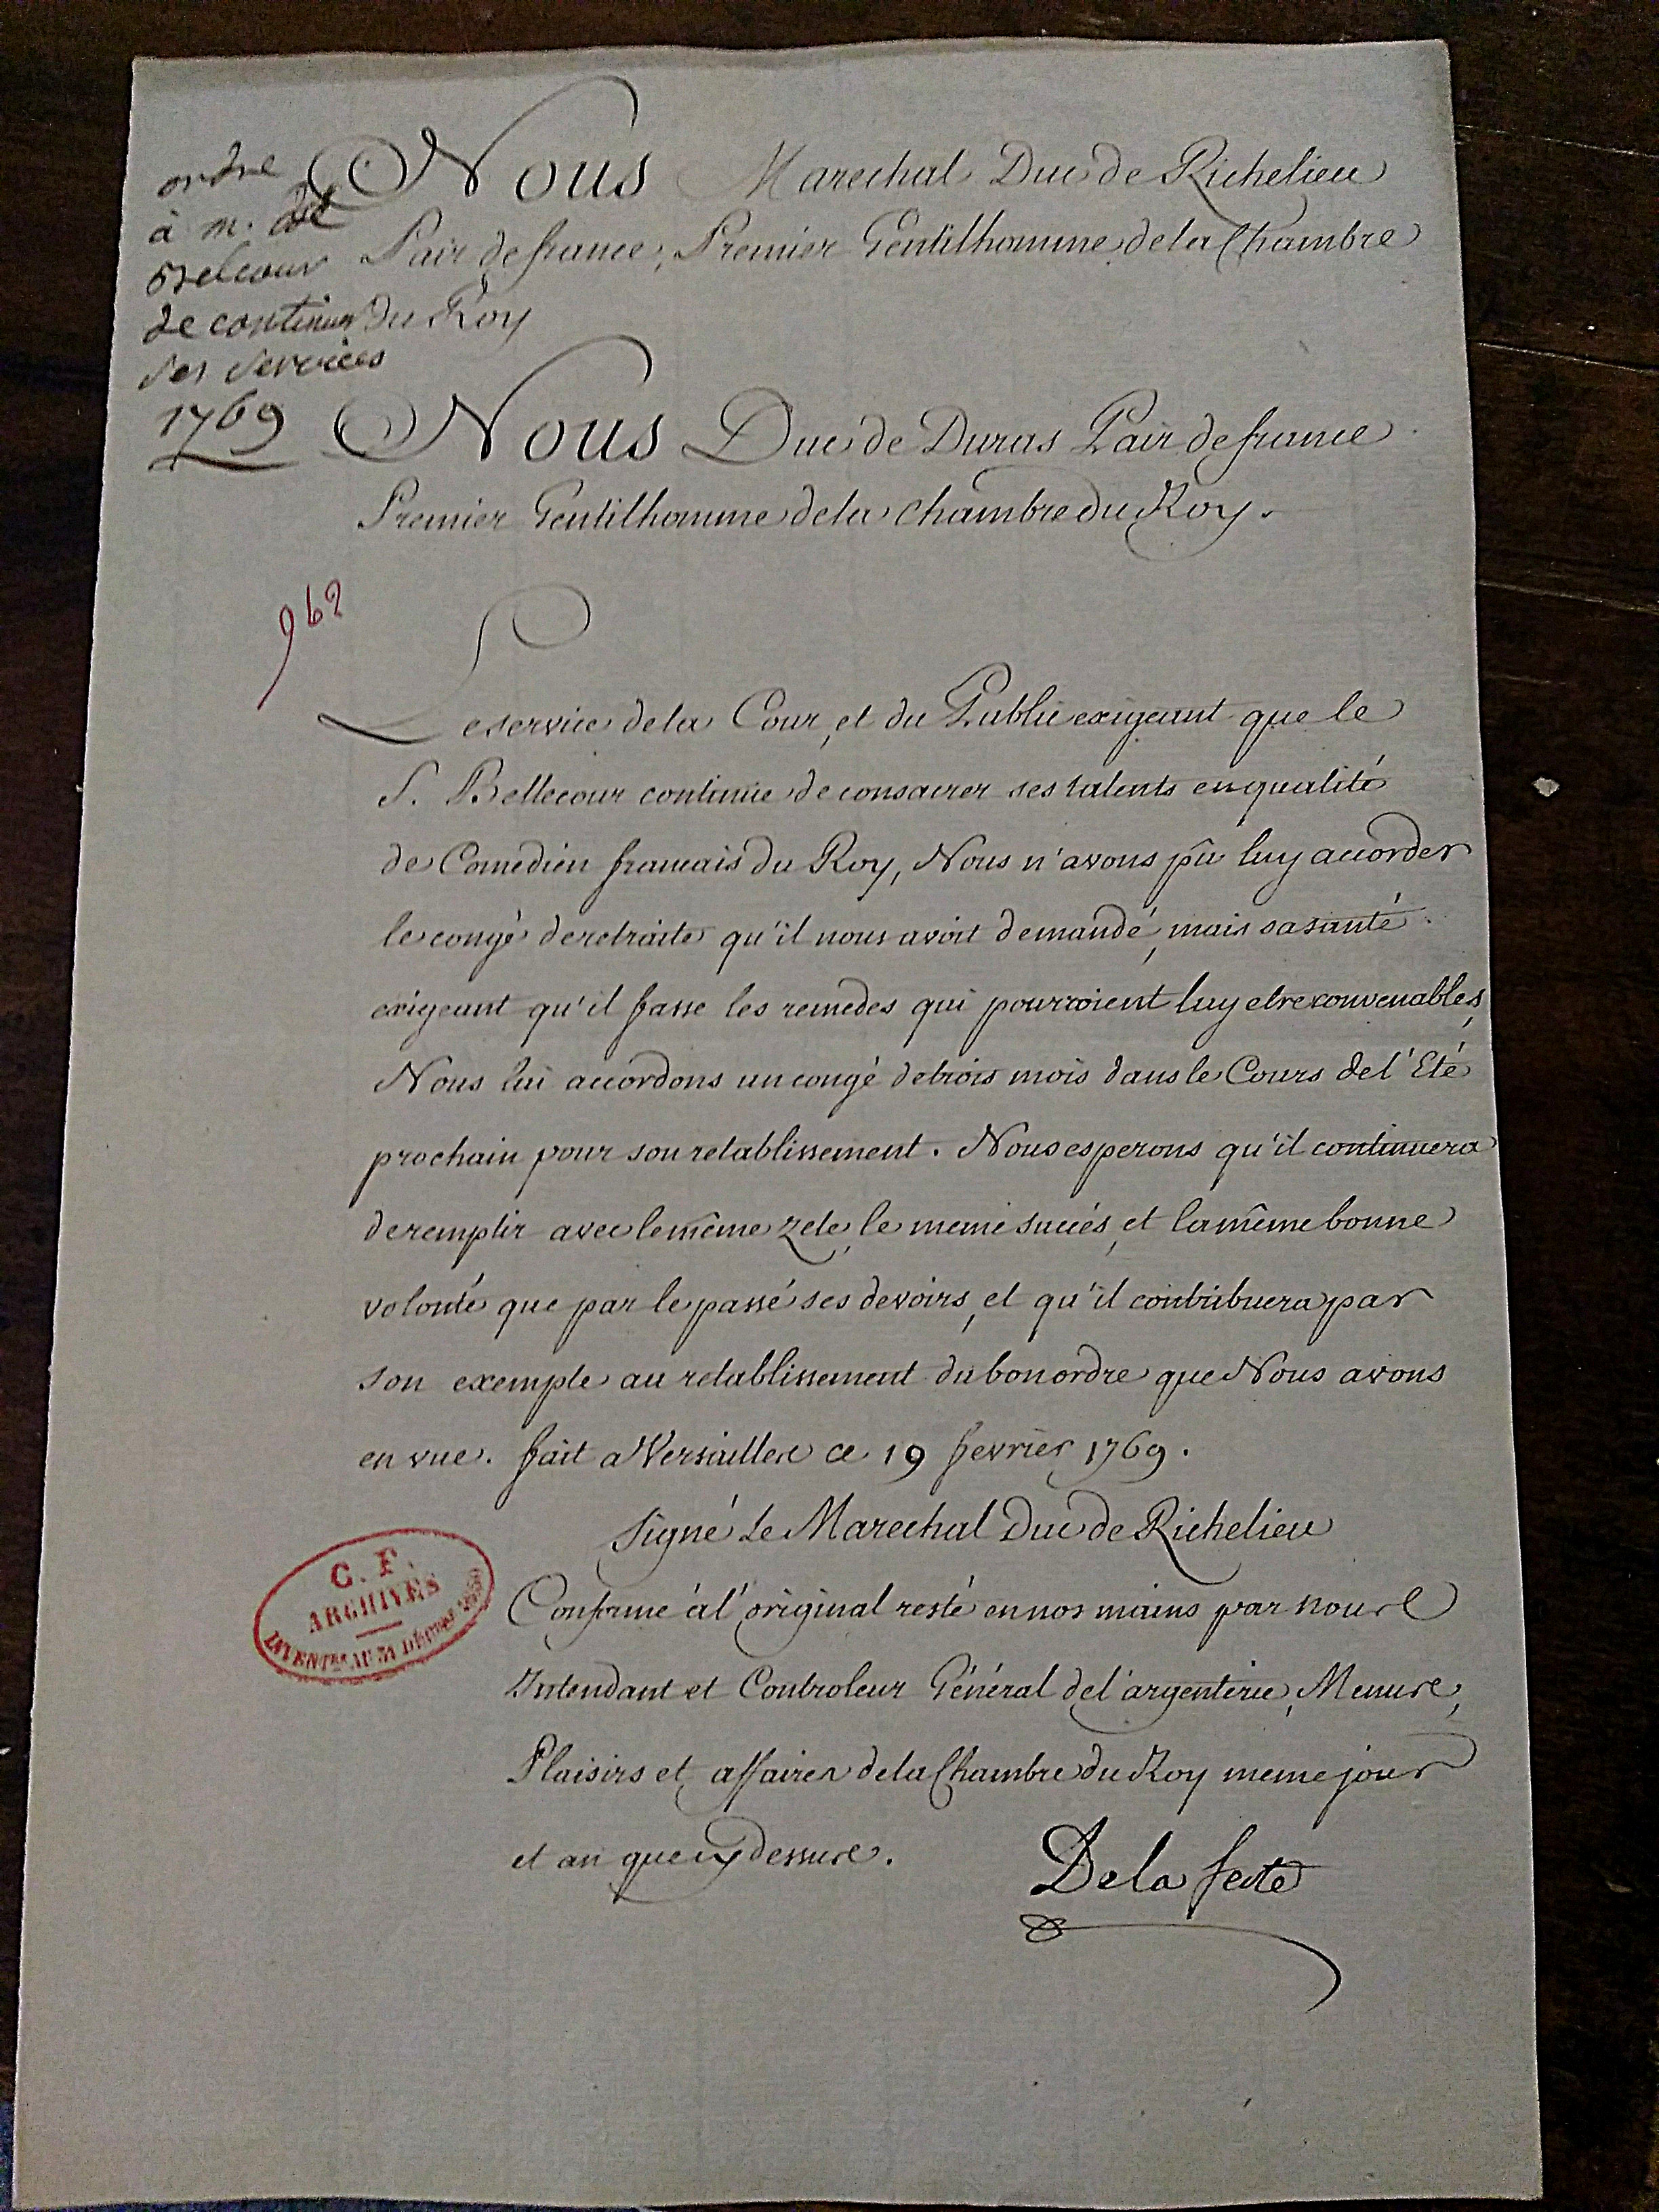 ordre
à m.
Belcour
de continuer
ses services
1769
Nous Marechal Duc de Richelieu
Pair de france, Premier Gentilhomme de la Chambre
du Roy
Nous Duc de Duras Pair de france
Premier Gentilhomme de la Chambre du Roy.
962
Le service de la Cour, et du Public exigeant que le
S. Bellecour continüe de consacrer ses talents en qualité
de Comedien francais du Roy, Nous n'avons pû luy accorder
le congé de retraite qu'il nous avoit demandé, mais sa santé
exigeant qu'il fasse les remedes qui pourroient luy etre convenables,
Nous lui accordons un congé de trois mois dans le Cours de l'Eté
prochain pour son retablissement. Nous esperons qu'il continuera
de remplir avec le même zele, le meme succés, et la même bonne
volonté que par le passé ses devoirs, et qu'il contribuera par
son exemple au retablissement du bon ordre que Nous avons
en vue. fait a Versailles ce 19 fevrier 1769.
Signé Le Marechal Duc de Richelieu
C. F.
ARCHIVES
Conforme à l'original resté en nos mains par nous
Intendant et Controleur Général de l'argenterie, Menus,
Plaisirs et affaires de la Chambre du Roy meme jour
et an que cy dessus.
De la ferté